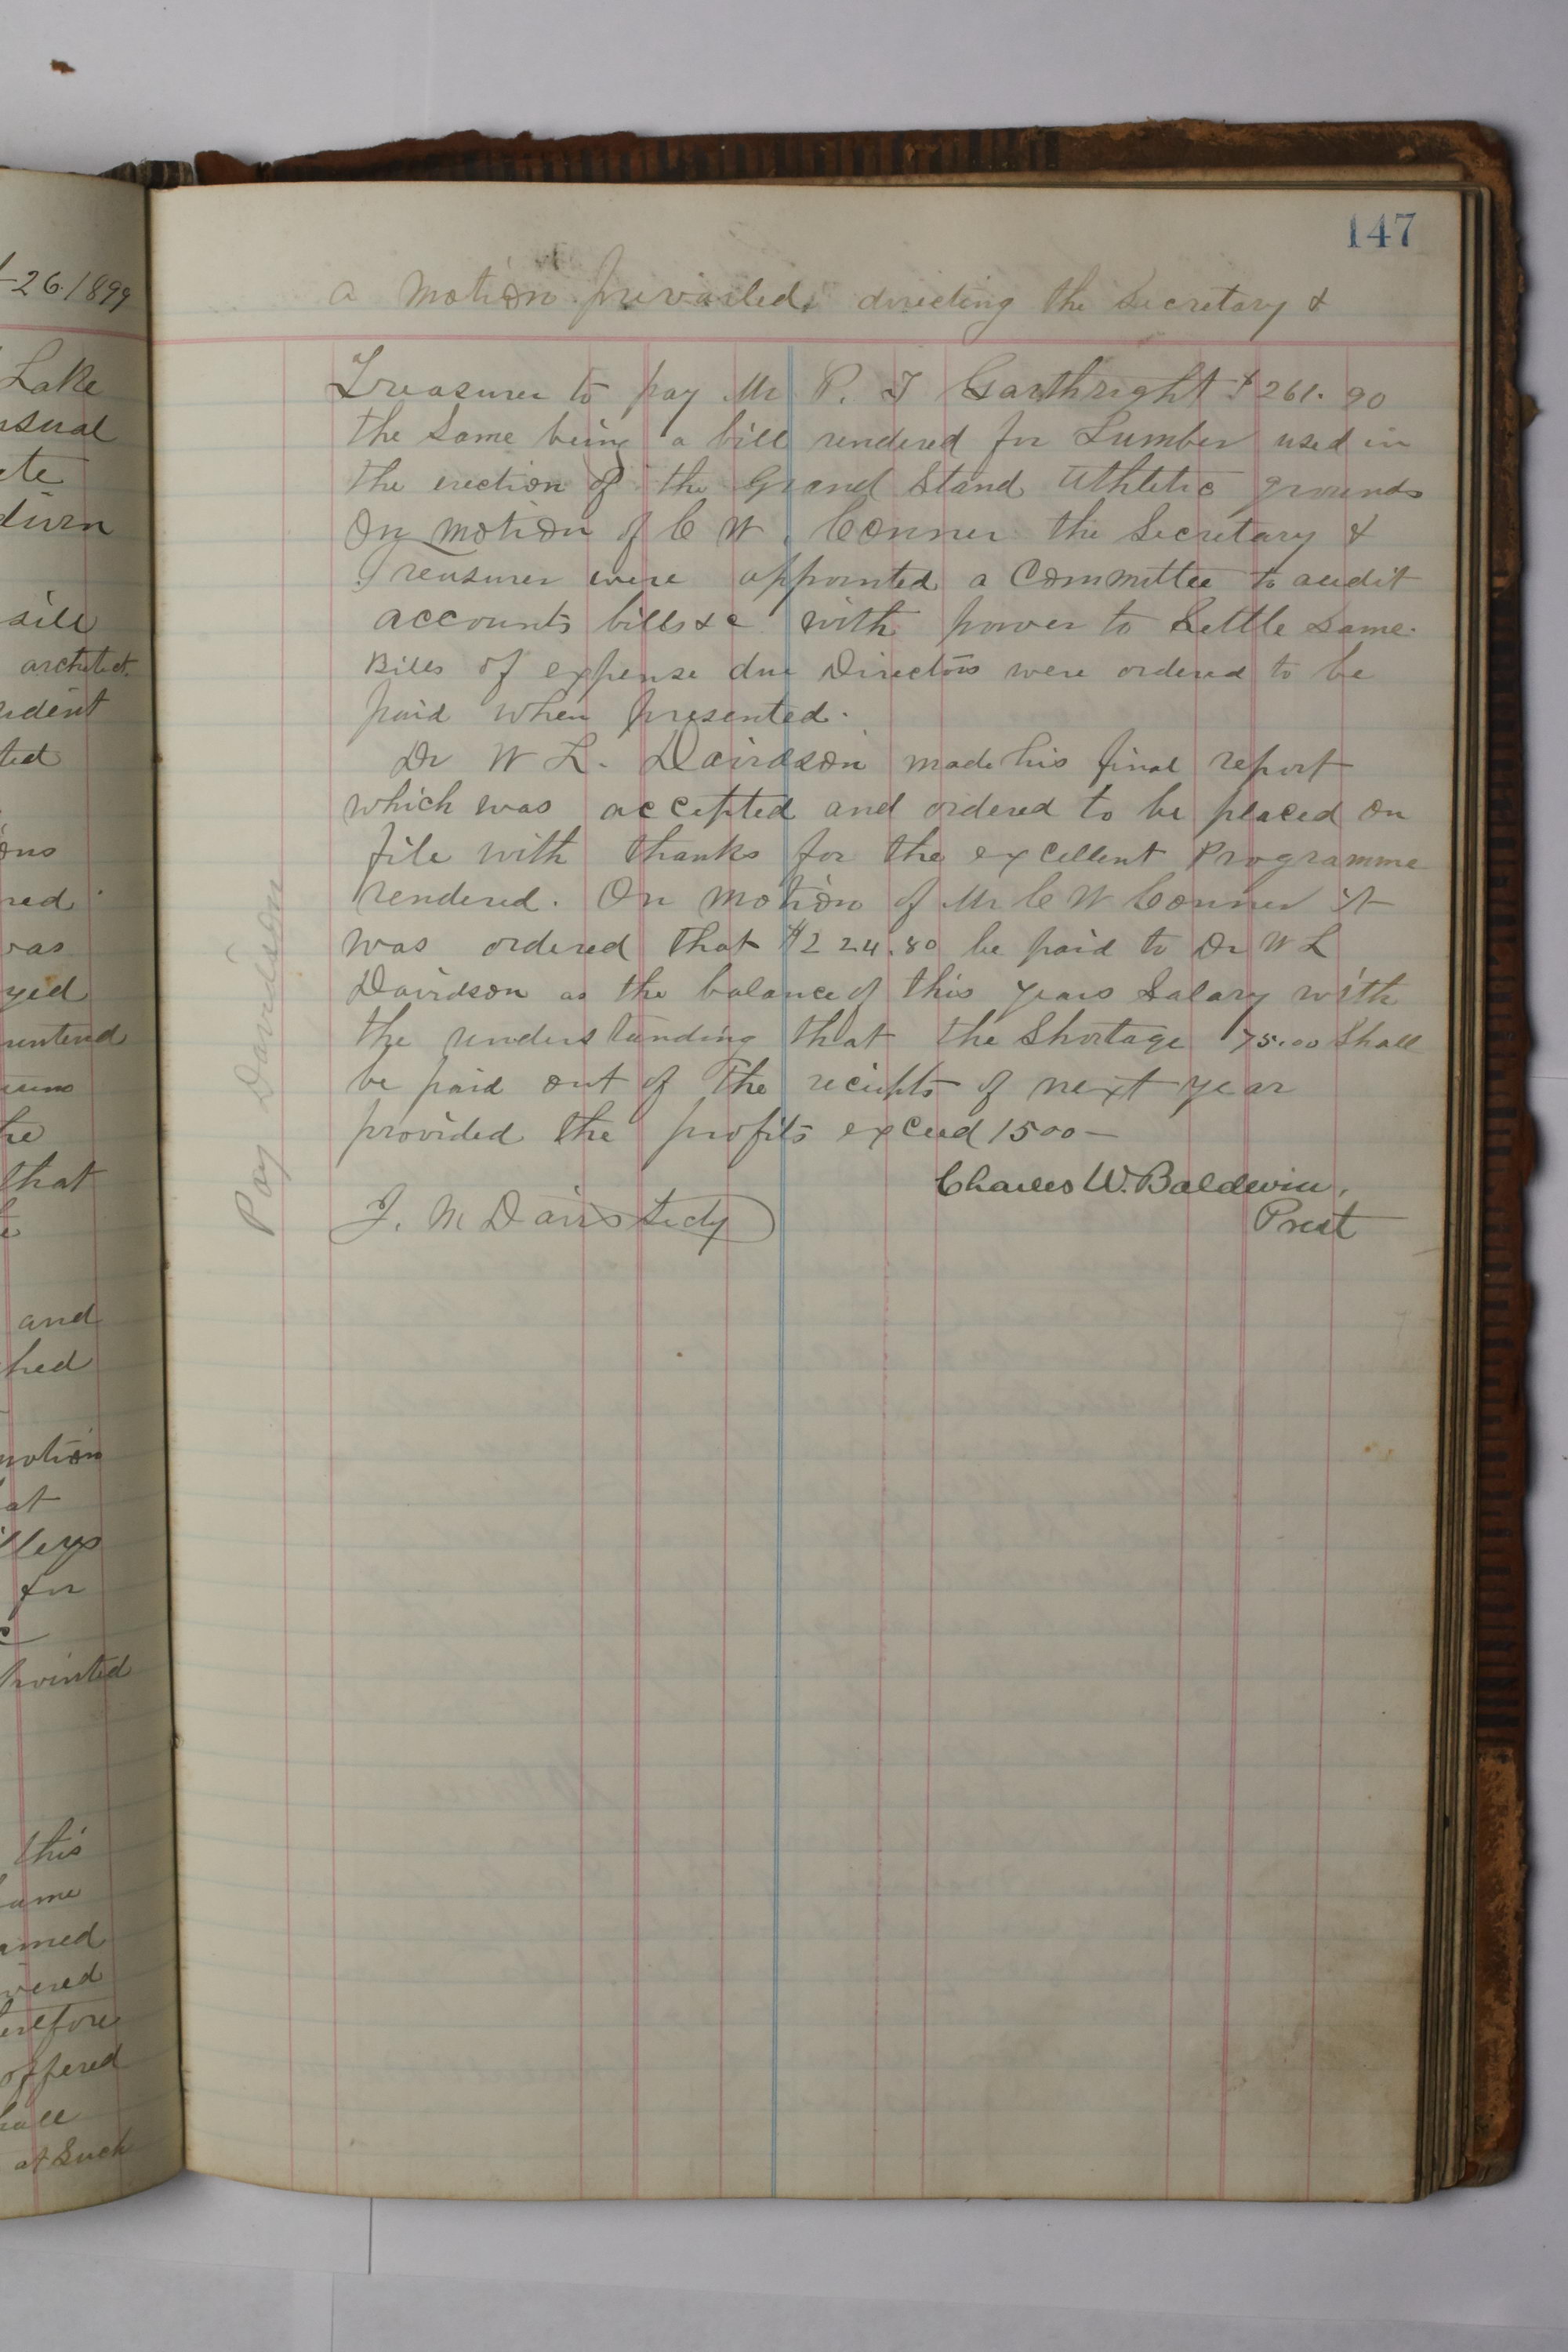 -26.1899
Lake
usual
ete
durn
sill
architect.
ident
ted
ons
red
was
yed
untend
he
that
and
hed
motion
at
illeys
for
pointed
this
same
amed
vered
erefore
offered
hall
at Such
147
a motion prevailed, directing the Secretary &
Treasurer to pay Mr P. T Garthright $261.90
the same being a bill rendered for Lumber used in
the erection of the Grand Stand Athletic grounds
On motion of C W. Conner the Secretary &
Treasurer were appointed a Committee to audit
accounts bills &c with power to Settle same.
Bills of expense due Directors were ordered to be
paid when presented.
Dr W L. Davidson made his final report
which was accepted and ordered to be placed on
file with thanks for the excellent Programme
rendered. On motion of Mr C W Conner it
was ordered that $224.80 be paid to Dr W L
Davidson as the balance of this years Salary with
the understanding that the Shortage 75.00 Shall
be paid out of The reciepts of next year
provided the profits exceed 1500—
Charles W. Baldwin,
Prest
J. M Davis Secty
Pay Davidson